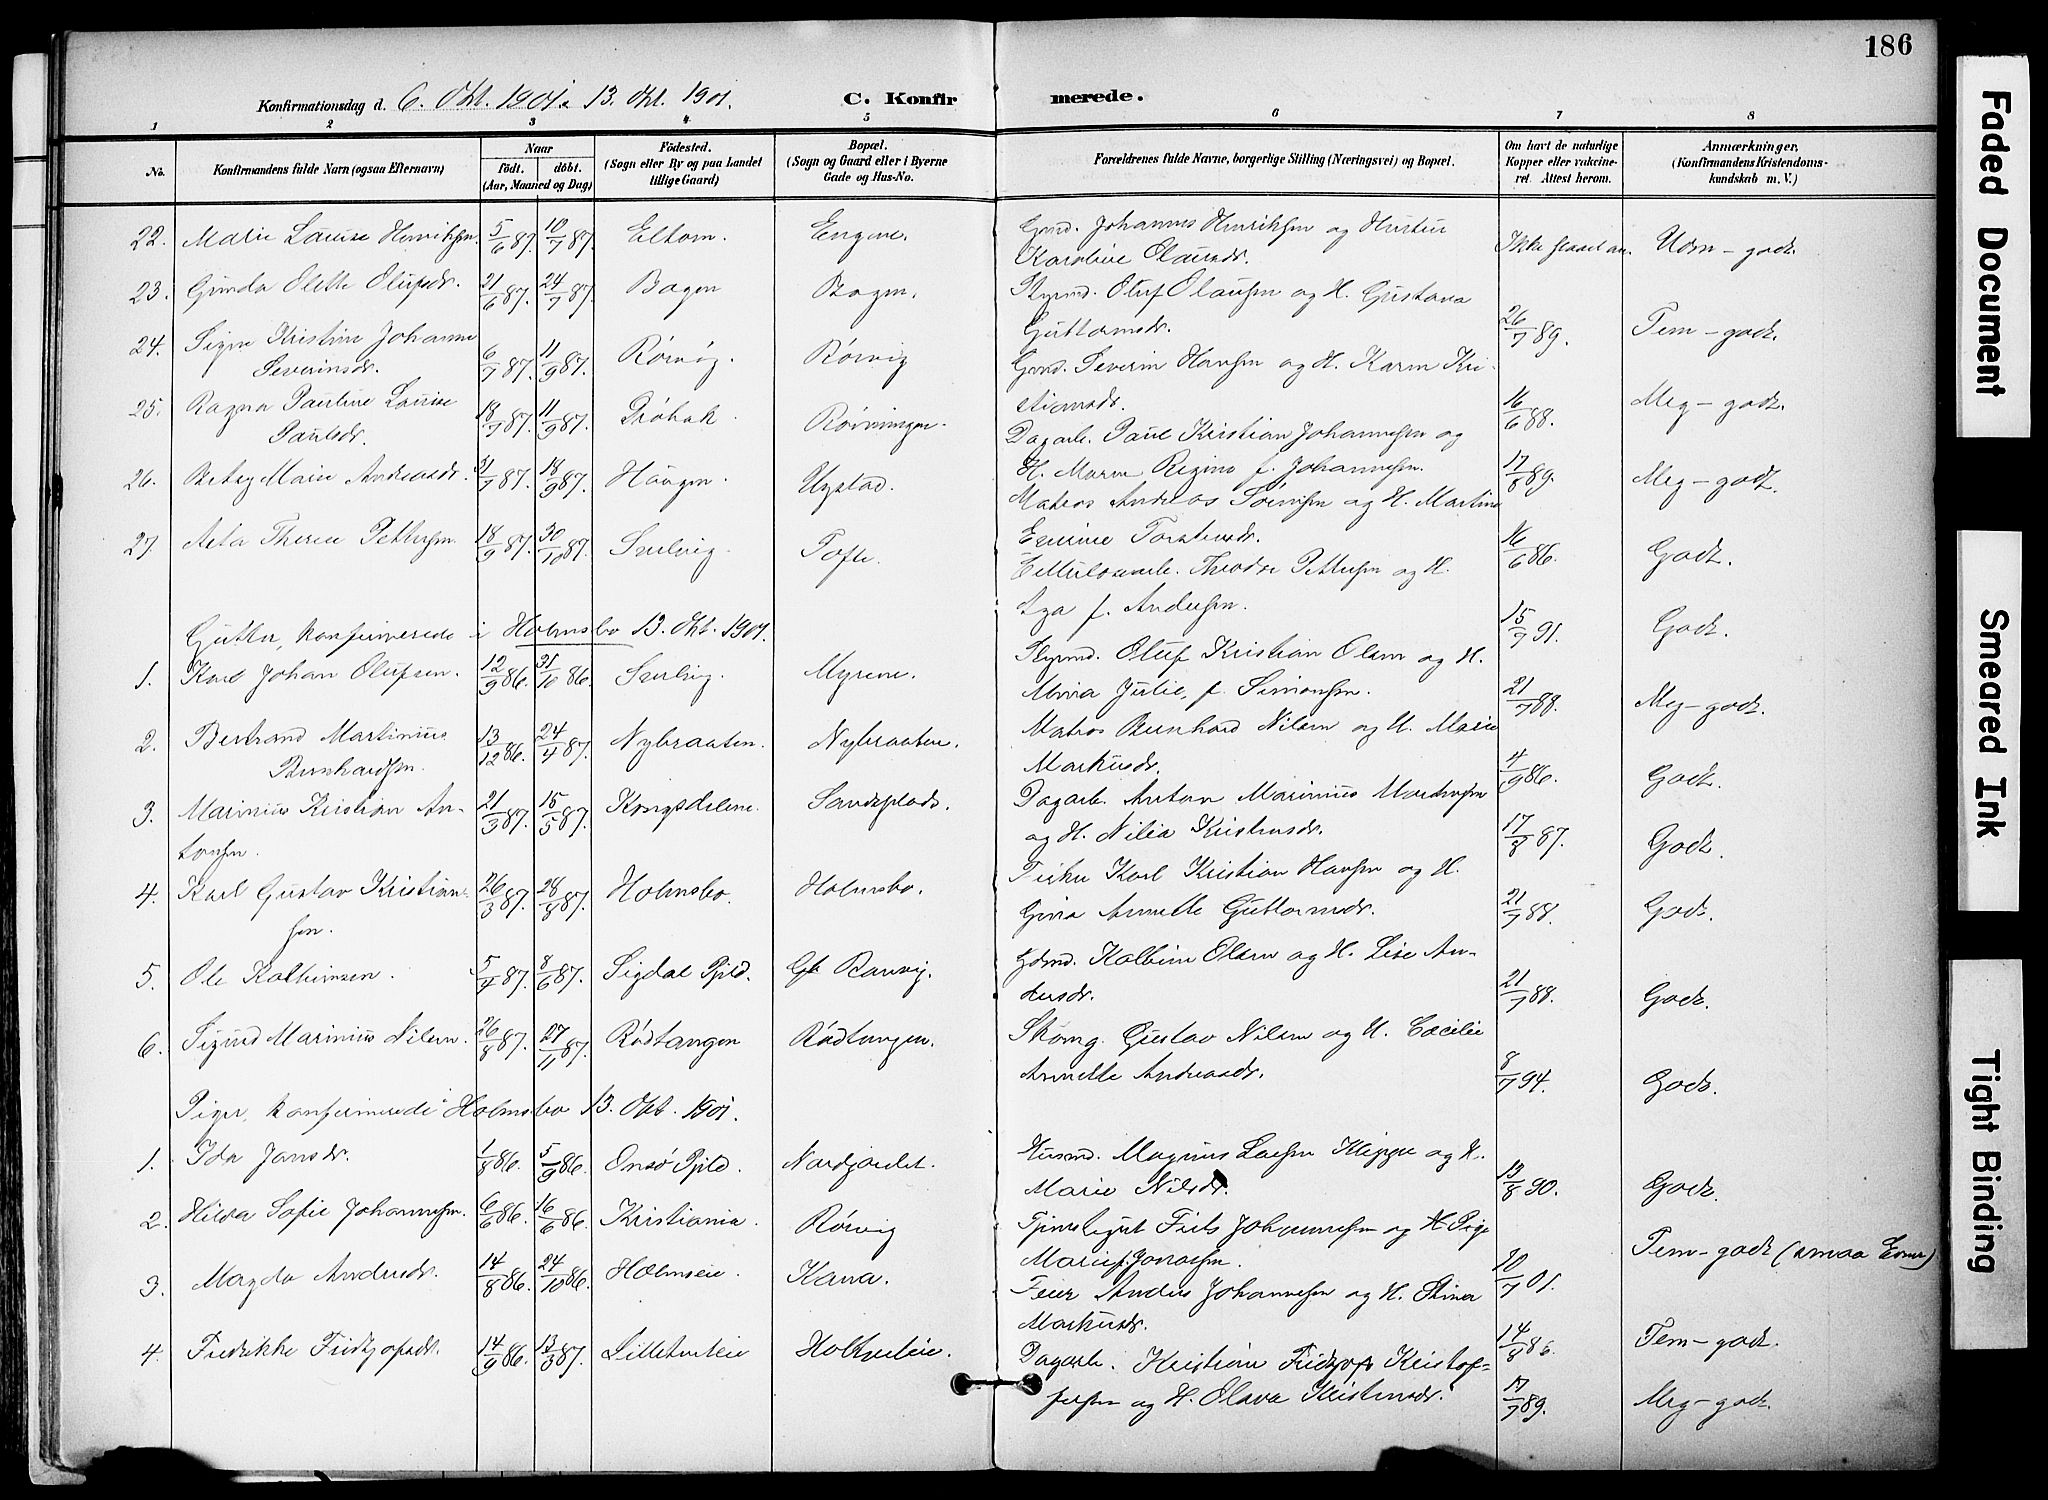 186
Konfirmationsdag d. 6. Okt. 1901 13. Okt. 1901. C. Konfirmerede.
1 2 3 4 5 6 7 8
No. Konfirmandens fulde Navn (ogsaa Efternavn) Naar født. døbt. (Aar, Maaned og Dag) Fødested. (Sogn eller By og paa Landet tillige Gaard) Bopæl. (Sogn og Gaard eller i Byerne Gade og Hus-No. Forældrenes fulde Navne, borgerlige Stilling (Næringsvei) og Bopæl. Om havt de naturlige Kopper eller vaccineret. Attest herom. Anmærkninger, (Konfirmandens Kristendomskundskab m. V.)
22. Marie Louise Henriksen. 5/6 87. 10/7 87. Eltorn. Engene. Gmd. Johannes Henriksen og Hustru
Karoline Olausdr. Ikke slaaet an. Udm-godt.
23. Gunda Olette Olufsdr. 21/6 87. 24/7 87. Bogen Bogen. Styrmd. Oluf Olausen og H. Gustava
Guttormsdr. 26/7 89. Tem-godt.
24. Signe Kristine Johanne
Severinsdr. 6/7 87. 11/9 87. Rørvig. Rørvig Gmd. Severin Hansen og H. Karen Kri-
stiansdr. 16/6 88. Meg-godt.
25. Ragna Pauline Louise
Paulsdr. 18/7 87. 11/9 87. Drøbak. Rørvningen. Dagarb. Paul Kristian Johannesen og
H. Maren Regine f. Johannesen. 17/8 89. Meg-godt.
26. Betsy Marie Andreasdr. 31/7 87. 18/9 87. Haugen. Matros Andreas Sørensen og H. Martine
Torstensdr. 16/6 86. Godt.
27. Asta Therese Pettersen 18/9 87. 30/10 87. Tofte. Theodor Pettersen og H.
f. Andersen. 15/7 91. Godt.
Gutter, konfirmerede i Holmsbo 13. Okt. 1901.
1. Karl Johan Olufsen. 12/9 86. 31/10 86. Myrene. Styrmd. Oluf Kristian Olsen og H.
Mina Julie, f. Simonsen. 21/7 88. Meg-godt.
2. Bertrand Martinius
Bernhardsen. 13/12 86. 24/4 87. Nybraaten. Nybraaten. Matros Bernhard Nilsen og H. Marie
Markusdr. 4/9 86. Godt.
3. Marinius Kristian An-
tonsen. 21/3 87. 15/5 87. Kongsdelene. Sandsplads. Dagarb. Anton Marinius
og H. Nilia Kristensdr. 17/8 87. Godt.
4. Karl Gustav Kristian-
sen. 26/3 87. 28/8 87. Holmsbo. Holmsbo. Fisker Karl Kristian Hansen og H.
Gina Annette Guttormsdr. 21/7 88. Godt.
5. Ole Kolbeinsen. 5/4 87. 8/6 87. Sigdal Pgld. Ranvig. Gdmd. Kolbein Olsen og H. Lise An-
dersdr. 21/7 88. Godt.
6. Sigurd Marinius Nilsen. 26/8 87. 27/11 87. Rødtangen Rødtangen. Skomg. Gustav Nilsen og H. Cæcilie
Annette Andreasdr. 8/7 94. Godt.
Piger, konfirmerede i Holmsbo 13. Okt. 1901.
1. Ida Jansdr. 1/8 86. 5/9 86. Onsø Pgld. Nordjordet. Husmd. Magnus Larsen Kleppe og H.
Marie Nilsdr. 13/8 90. Godt.
2. Hilda Sofie Johannesen. 6/6 86. 16/6 86. Kristiania. Rørvig Johannesen og H.
Marie f. Jonassen. 10/7 01. Tem-godt
3. Magda Andersdr. 14/8 86. 24/10 86. Holmseie. Kana. Feier Anders Johannesen og H. Stina
Markusdr. 14/8 86. Tem-godt.
4. Fredrikke Fridtjofsdr. 14/9 86. 13/3 87. Dagarb. Kristian Fridtjof Kristof-
fersen og H. Olava Kristensdr. 17/7 89. Meg-godt.
Faded Document
Smeared Ink
Tight Binding